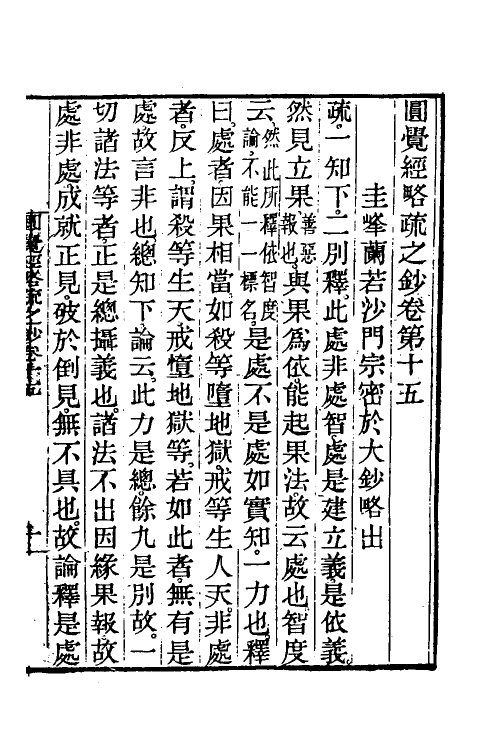 圓覺經略疏之鈔卷第十五
圭峯蘭若沙門宗密於大鈔略出
疏。一知下。二別釋。此處非處智。處是建立義。是依義。
然見立果善惡報也。與果爲依。能起果法。故云處也。智度
云然此所釋依智度論。不能一一標名。是處不是處如實知。一力也。釋
曰。處者。因果相當。如殺等墮地獄。戒等生人天。非處
者。反上。謂殺等生天。戒憻地獄等。若如此者。無有是
處。故言非也。總知下。論云。此力是總。餘九是別故。一
切諸法等者。正是總攝義也。諸法不出因緣果報。故
處非處。成就正見。破於倒見。無不具也。故論釋是處
圓覺經略疏之鈔卷十五
一